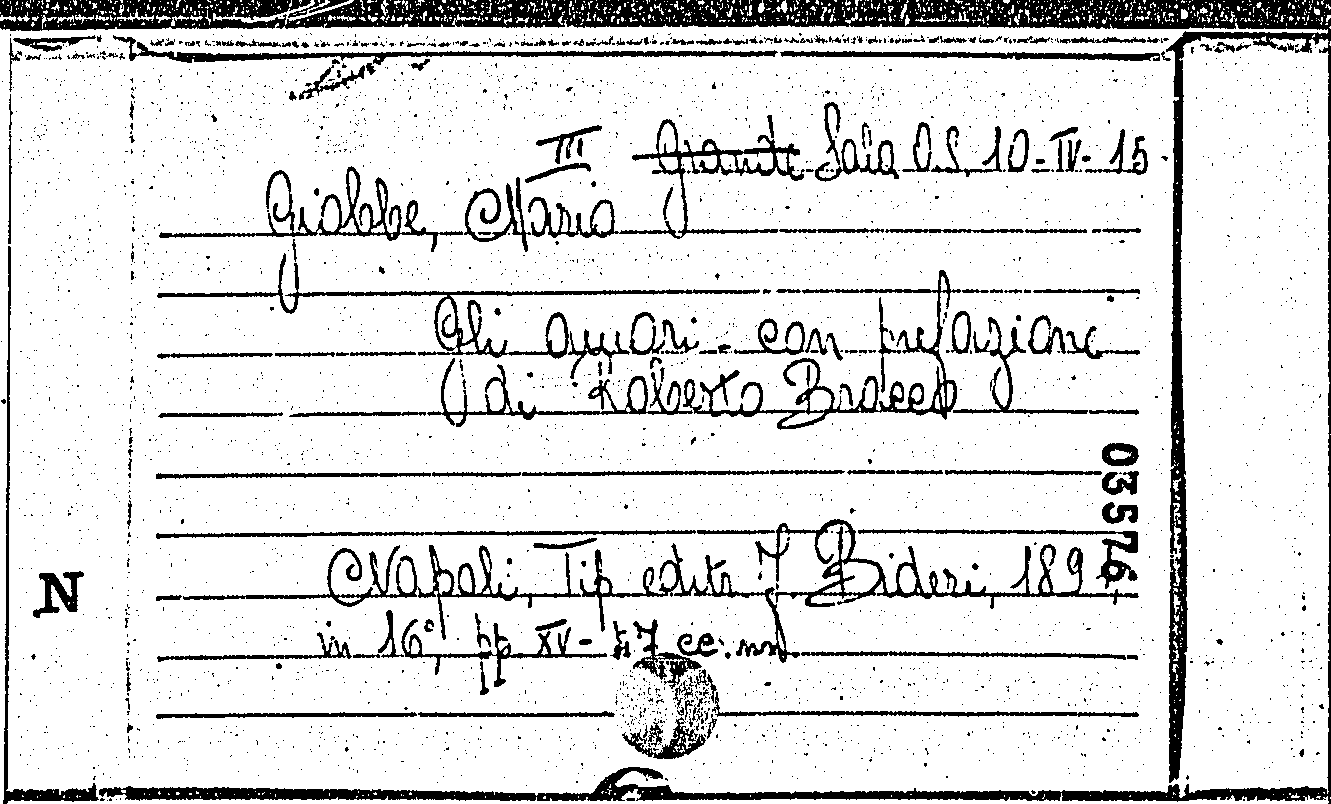 III Grande Sala O.S. 10-IV-15
Giobbe, Mario
Gli amari - con prefazione
di Roberto Bracco
03576
Napoli, Tip. edita Bideri, 189
N
in 16°, pp XV-47 cc. nn.